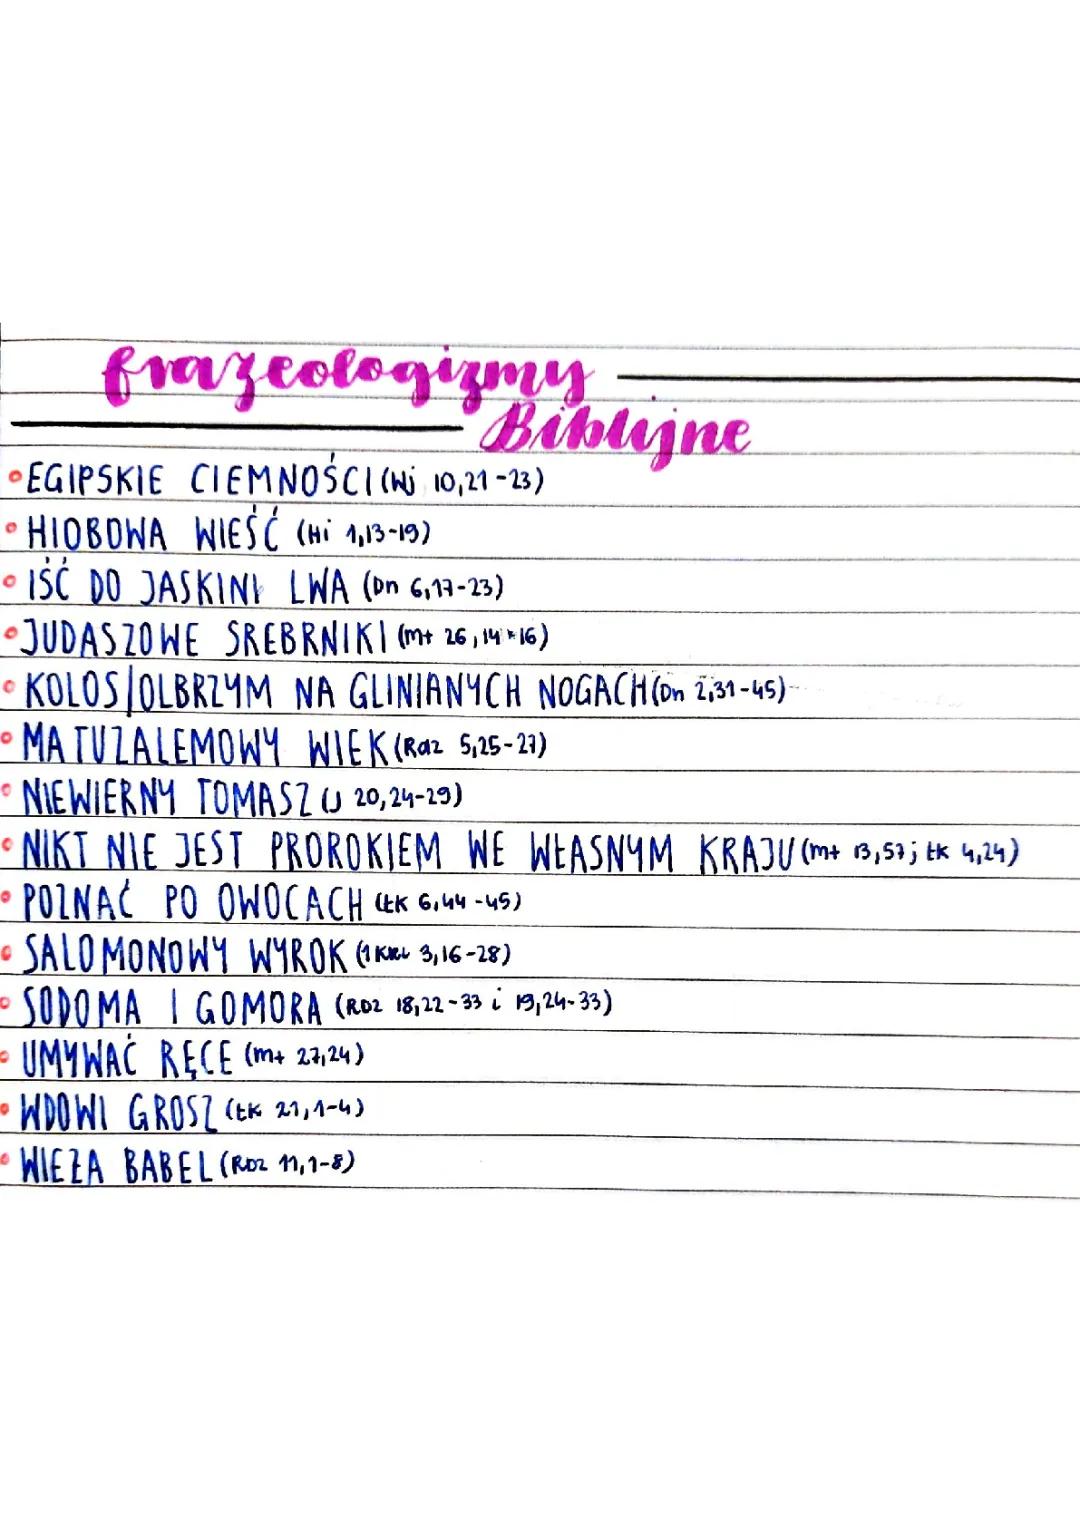 frazeologizmy
Biblijne
• EGIPSKIE CIEMNOŚCI (Wj 10,21-23)
• HIOBOWA WIEŚĆ (Hi 1,13-19)
• IŚĆ DO JASKINI LWA (Dn 6,17-23)
• JUDASZOWE SREBRNIKI (Mt 26,14-16)
• KOLOS/OLBRZYM NA GLINIANYCH NOGACH (Dn 2,31-45)
• MATUZALEMOWY WIEK (Rdz 5,25-27)
• NIEWIERNY TOMASZ (J 20,24-29)
• NIKT NIE JEST PROROKIEM WE WŁASNYM KRAJU (Mt 13,57; Łk 4,24)
• POZNAĆ PO OWOCACH (Łk 6,44-45)
• SALOMONOWY WYROK (1 Krl 3,16-28)
• SODOMA I GOMORA (RDZ 18,22-33 i 19,24-33)
• UMYWAĆ RĘCE (Mt 27,24)
• WDOWI GROSZ (Łk 21,1-4)
• WIEŻA BABEL (RDZ 11,1-8)